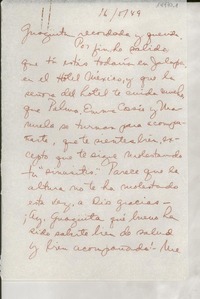 16/5/49
Guaguita recordada y querida
Por fin he sabido
que tú estás todavía en Jalapa,
en el Hotel México, y que la
señora del hotel te cuida mucho,
que Palma, Emma Cosío y Ma-
nuela se turnan para acompa-
ñarte, que te sientes bien, ex-
cepto que te sigue molestando
tu "sinusitis". Parece que la
altura no te ha molestado
esta vez, a Dios gracias -
¡Ay, Guaguita qué bueno ha
sido saberte bien de salud
y bien acompañada! - Me